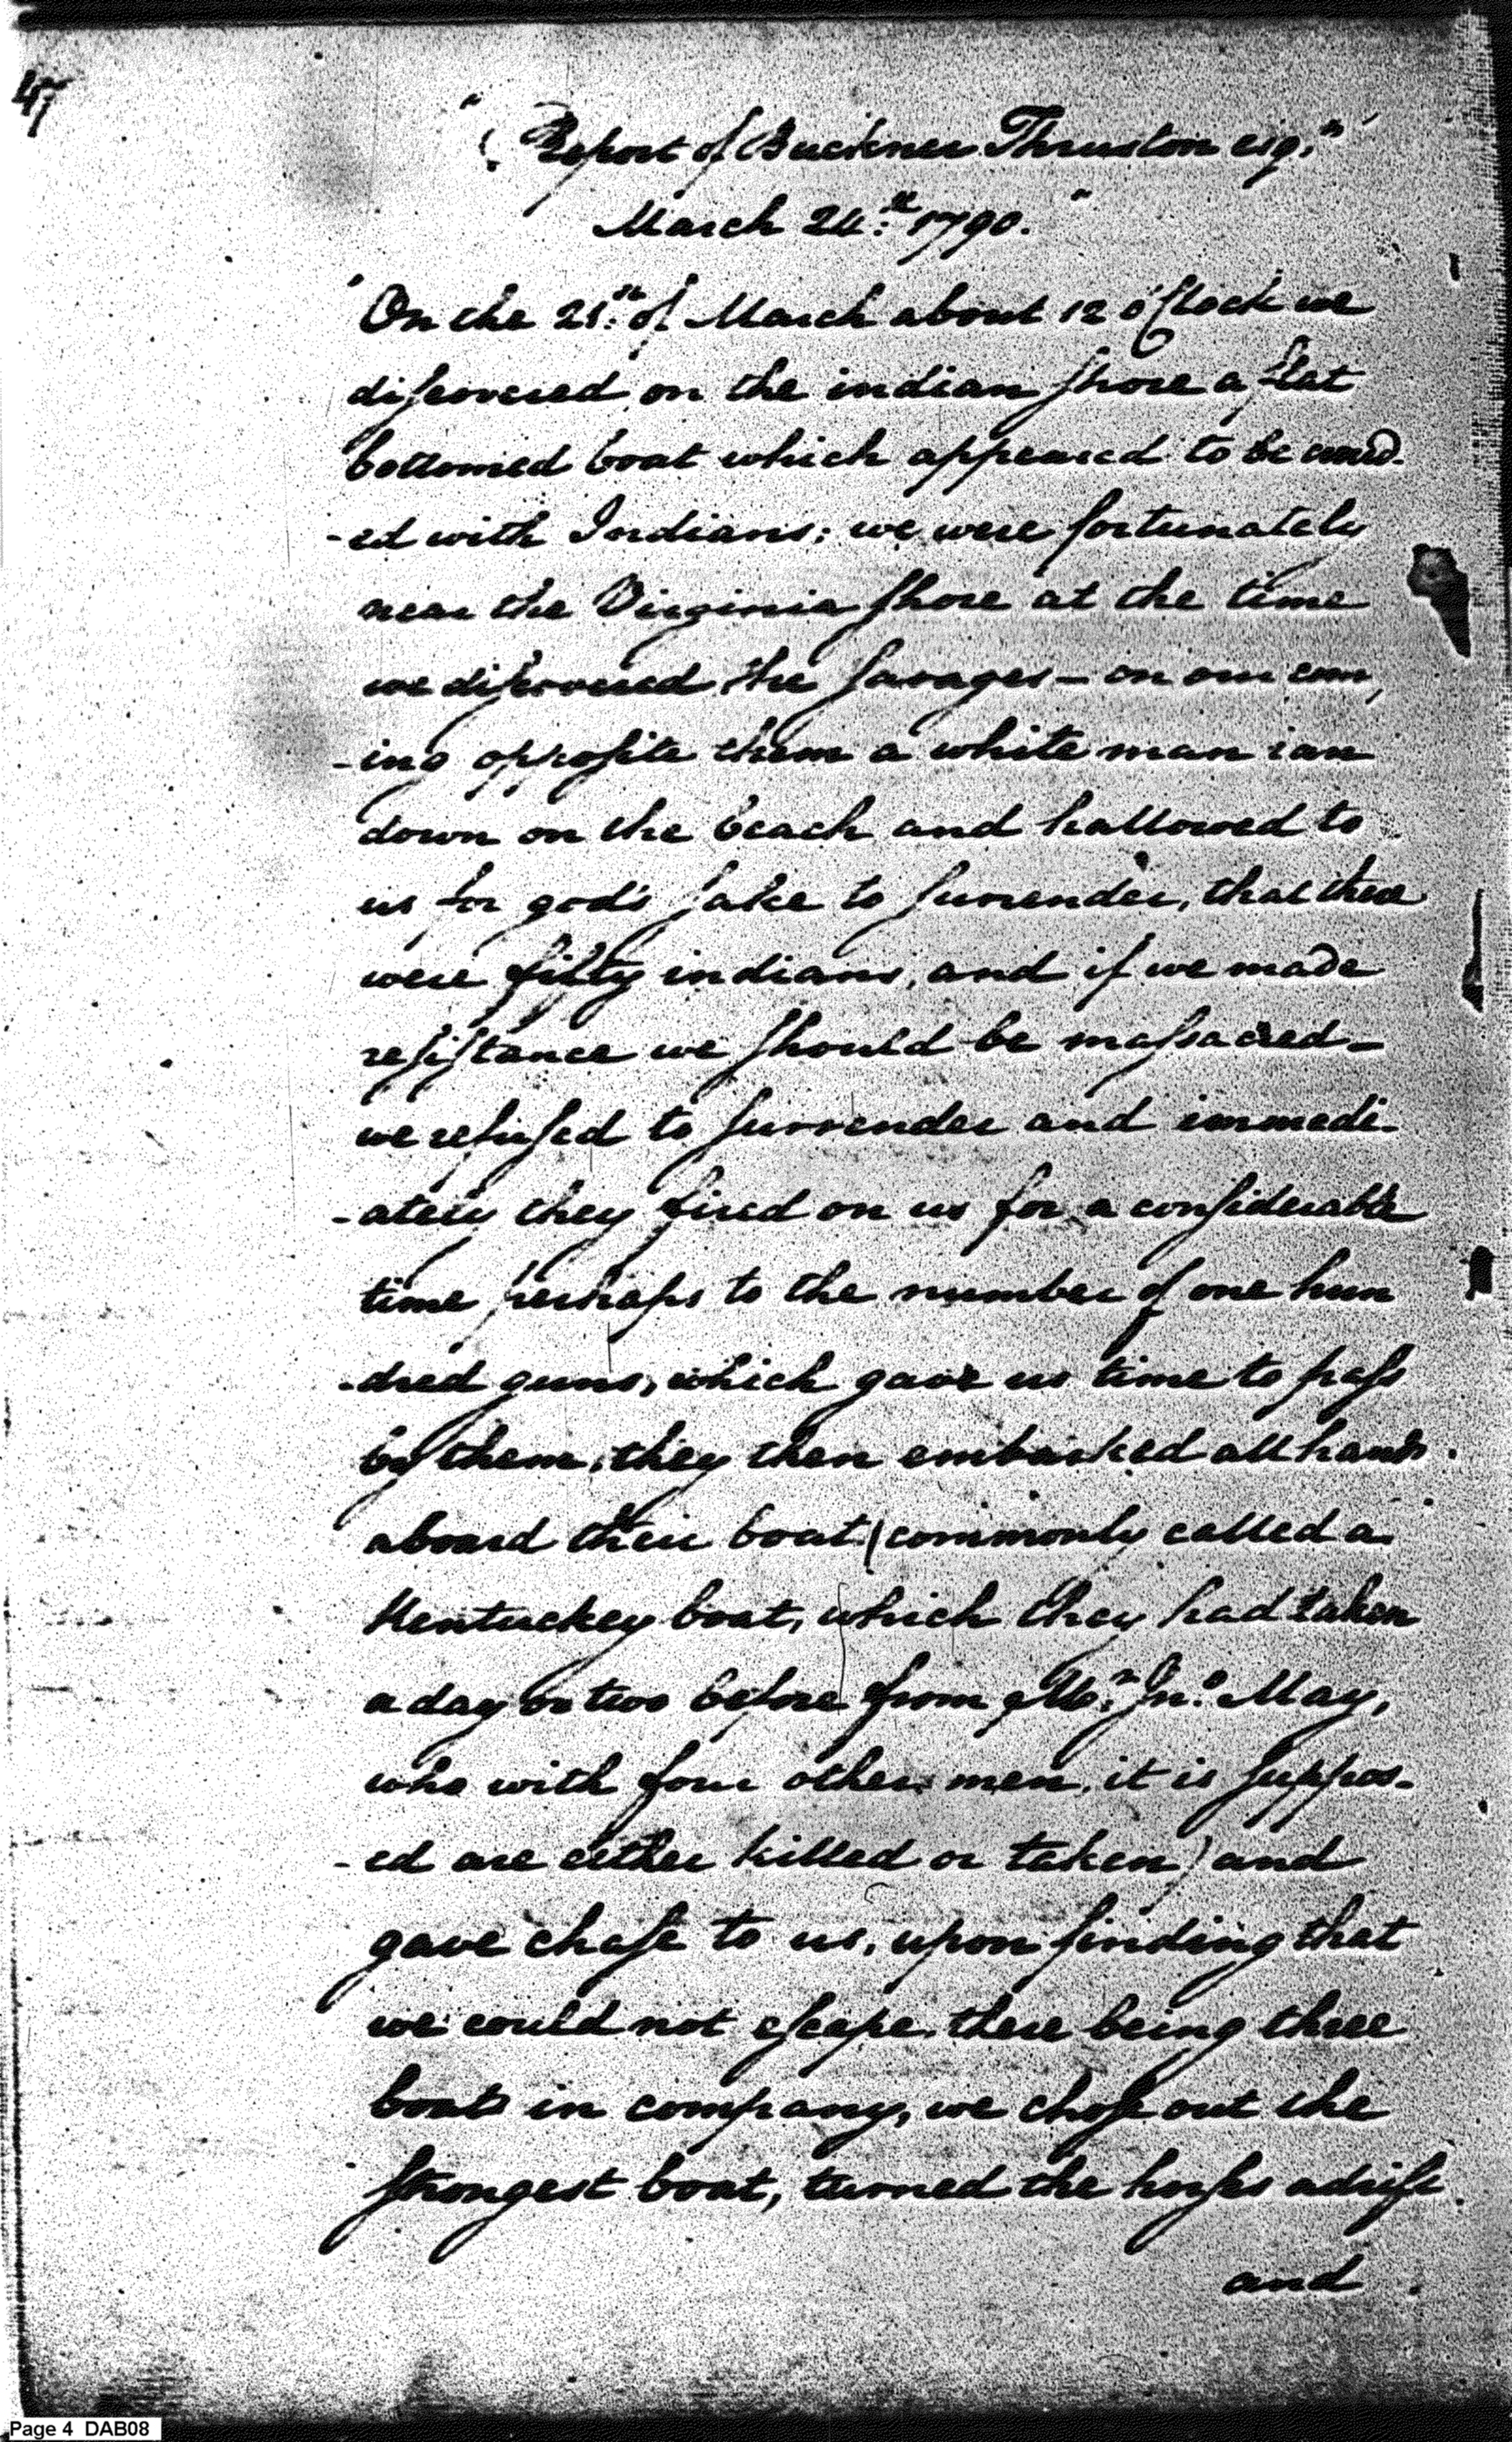 47
"( Report of Buckner Thruston esq.r"
March 24.th 1790."
"On the 21.st of March about 12 o'Clock we
discovered on the indian shore a flat
bottomed boat which appeared to be crowd-
-ed with Indians; we were fortunately
near the Virginia shore at the time
we discovered the savages — on our com,
-ing opposite them a white man ran
down on the beach and hallowed to
us for god's sake to surrender, that there
were fifty indians, and if we made
resistance we should be massacred —
we refused to surrender and immedi-
-ately they fired on us for a considerable
time perhaps to the number of one hun
-dred guns, which gave us time to pass
by them, they then embarked all hands
aboard their boat (commonly called a
Kentuckey boat, which they had taken
a day or two before from Mr. Jno. May,
who with four other men, it is suppos-
-ed are either killed or taken) and
gave chase to us, upon finding that
we could not escape, there being three
boats in company, we chose out the
strongest boat, turned the horses adrift
and
Page 4 DAB08